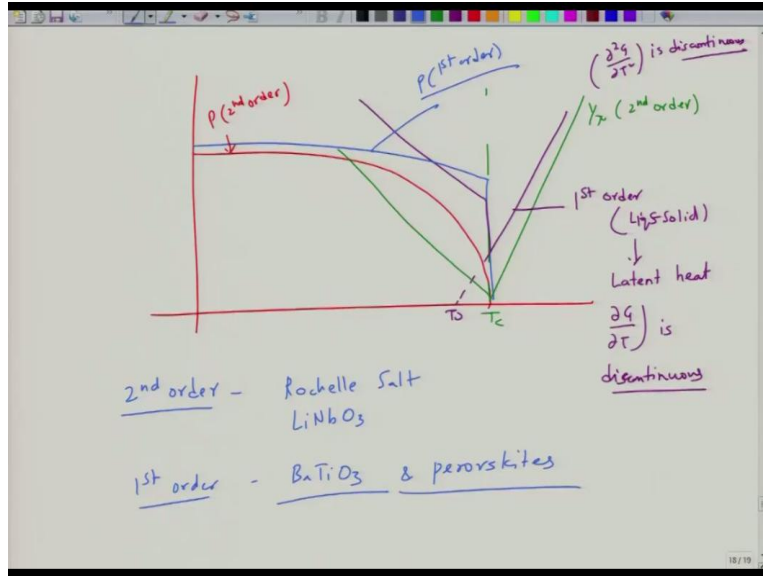 P (1st order)
(∂²G/∂T²) is discontinuous
P (2nd order)
1/χ (2nd order)
1st order
(Liq→Solid)
↓
Latent heat
∂G/∂T) is
discontinuous
T0 Tc
2nd order - Rochelle Salt
LiNbO3
1st order - BaTiO3 & perovskites
18 / 19